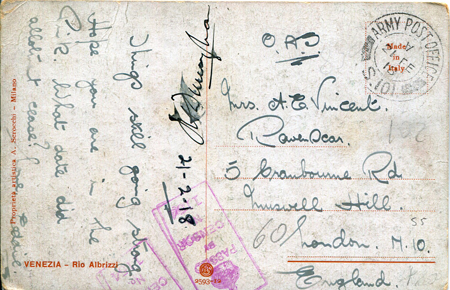 Things still going strong
Hope you are in the
Pink. What date did
allotment cease?
21-2-18
O.A.S
Mrs. A. E. Vincent.
Ravenscar.
5 Cranbourne Rd
Muswell Hill.
London. N.10.
England.
60
55
ARMY POST OFFICE
Made
in
Italy
PASSED
BY
CENSOR
VENEZIA - Rio Albrizzi
Proprietà artistica A. Scrocchi - Milano